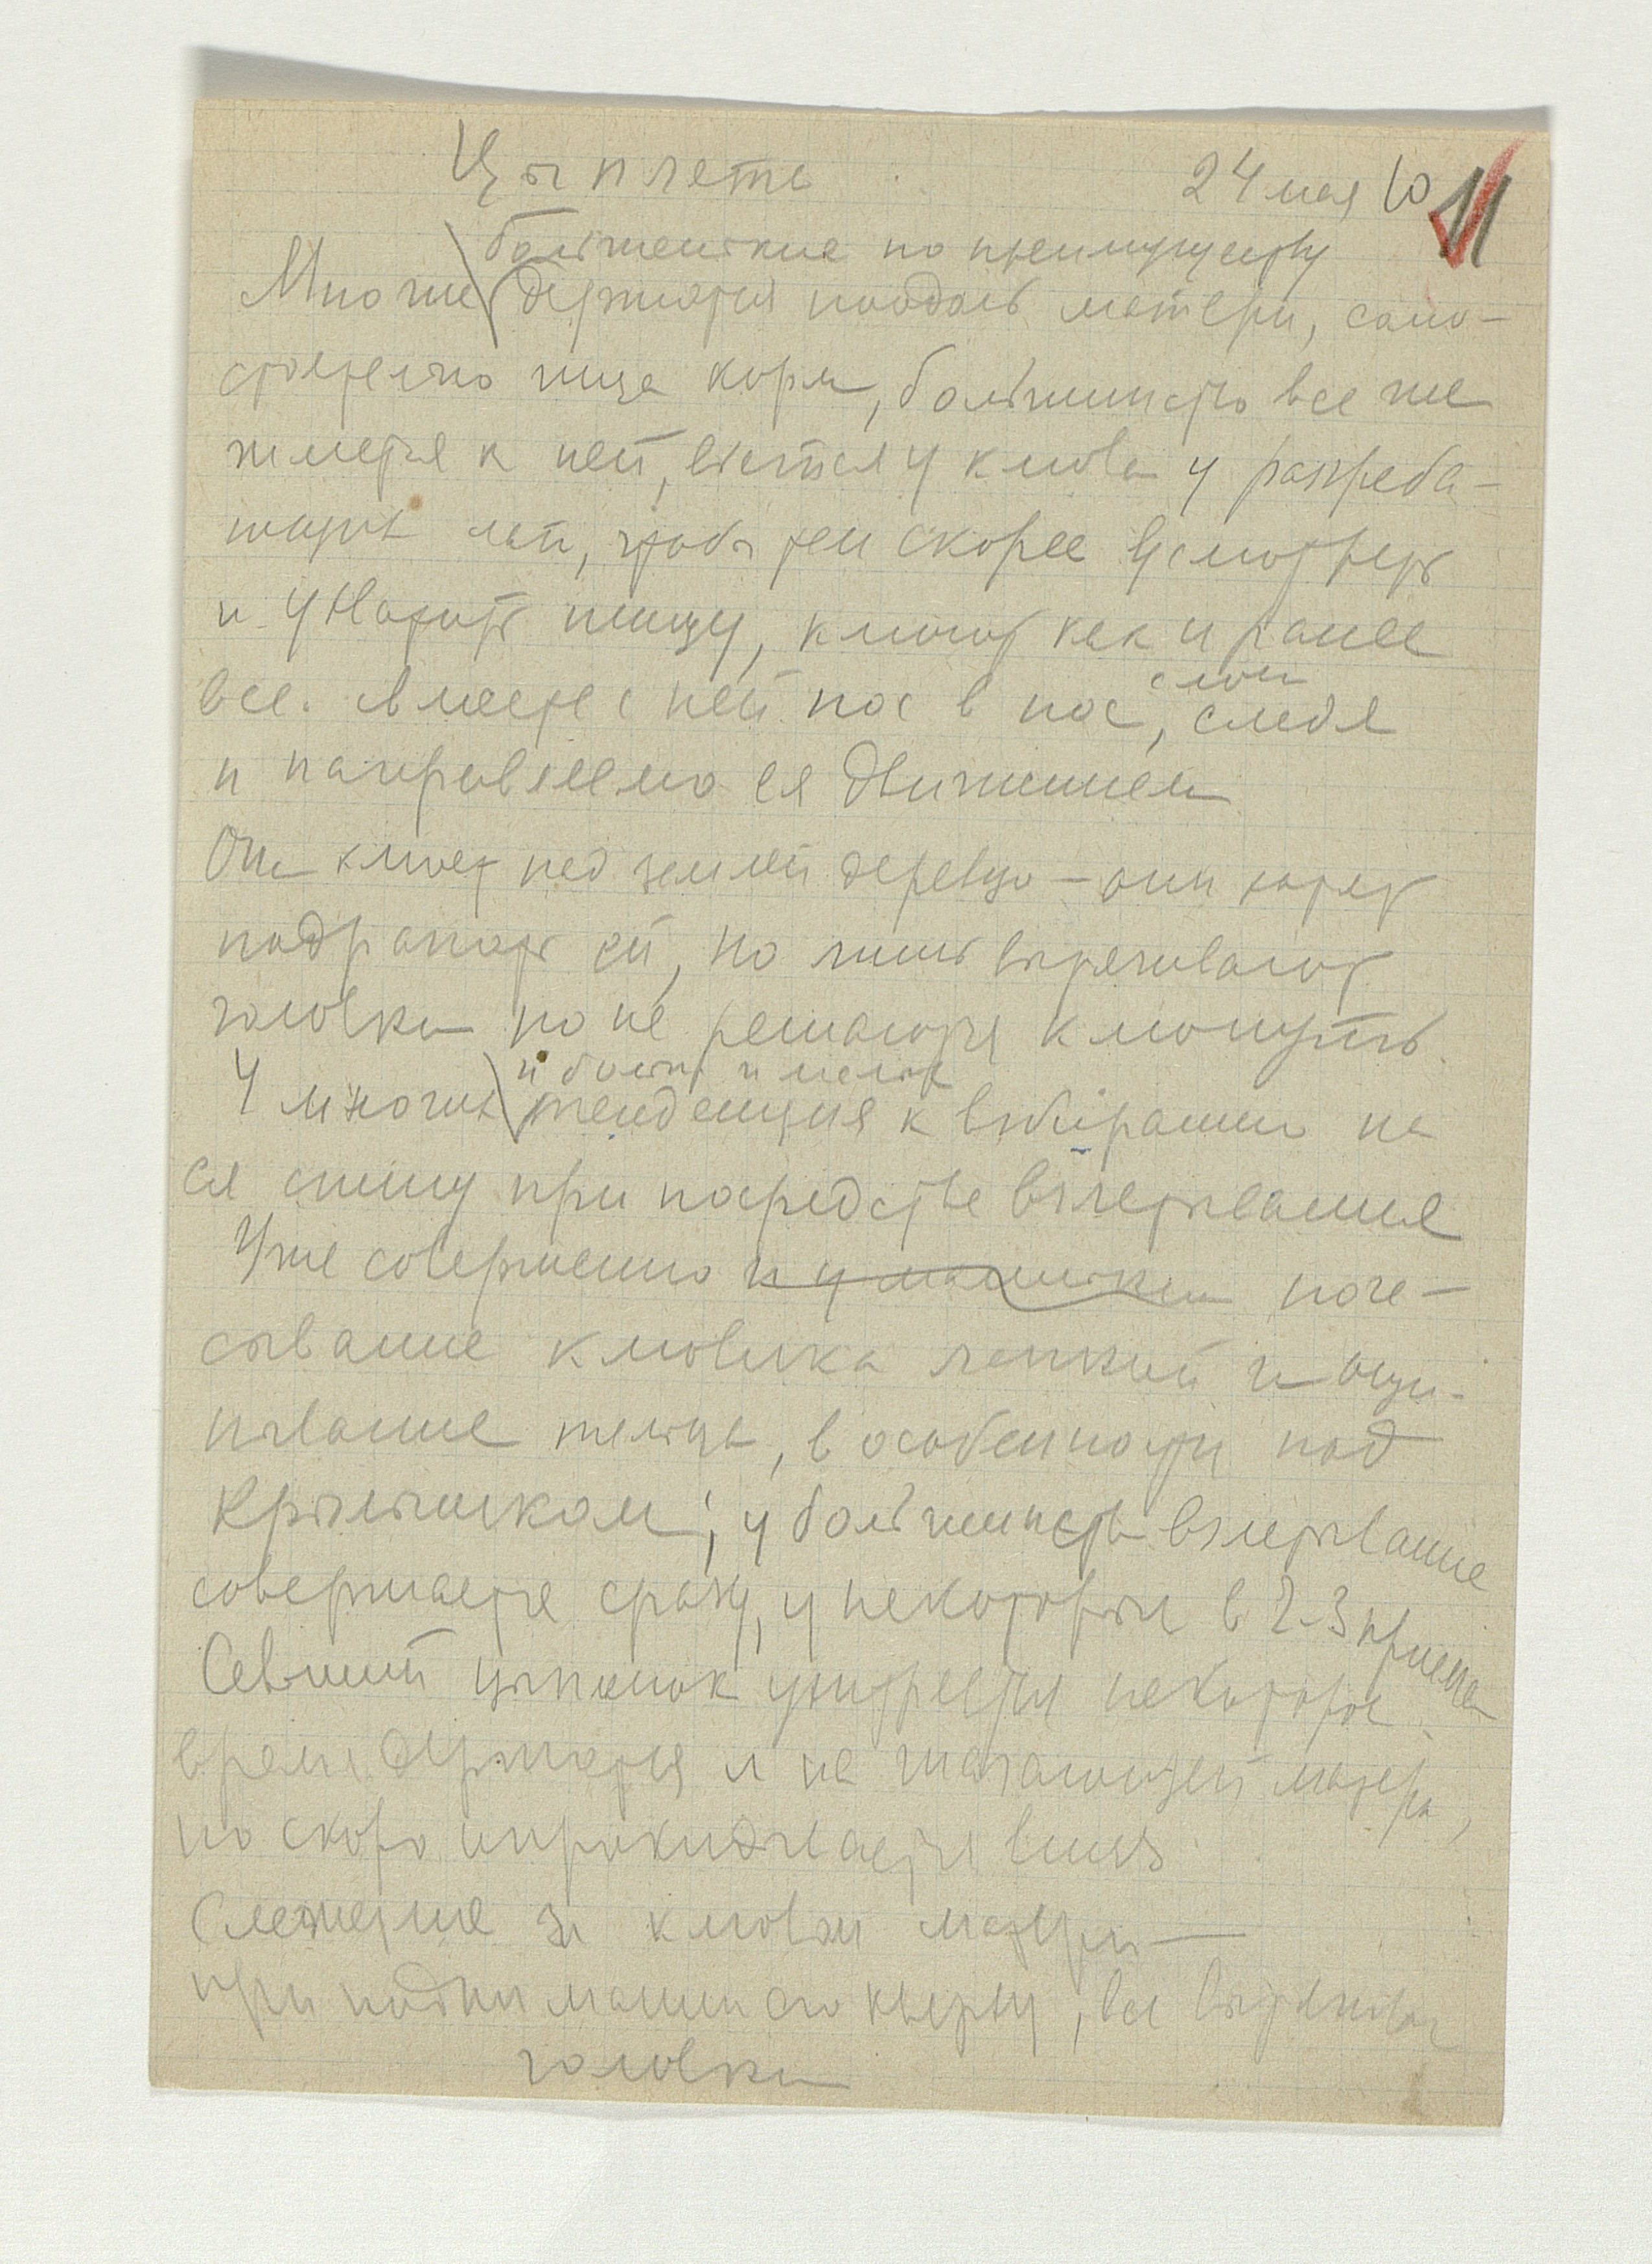 Цыплята 24 мая 10 11
большенькие по преимуществу
Многие держатся поодаль матери, само-
стоятельно ища корм, большинство все же
жмется к ней, вьется у клюва у разгреба-
ющих лап, чтобы тем скорее усмотреть
и ухватить пищу, клюют как и ранее
все вместе с ней нос в нос, следя
и направляемо ея движением
Она клюет над землей деревцо — они хотят
подражать ей, но лишь вытягивают
головки но не решаются клюнуть.
и больш и мелк
У многих тенденция к взбиранию на
ея спину при посредстве взлетывания
Уже совершенно и у маленьких поче-
сывание клювика лапкой и ощи-
пывание тельца, в особенности под
крылышком; у большинства взлетывание
совершается сразу, у некоторых в 2-3 приема
Севший цыпленок умудряется некоторое
время держаться и на шагающей матери,
но скоро опрокидывается вниз
Слежение за клювом матери —
при поднимании его кверху, все вытягивают
головки